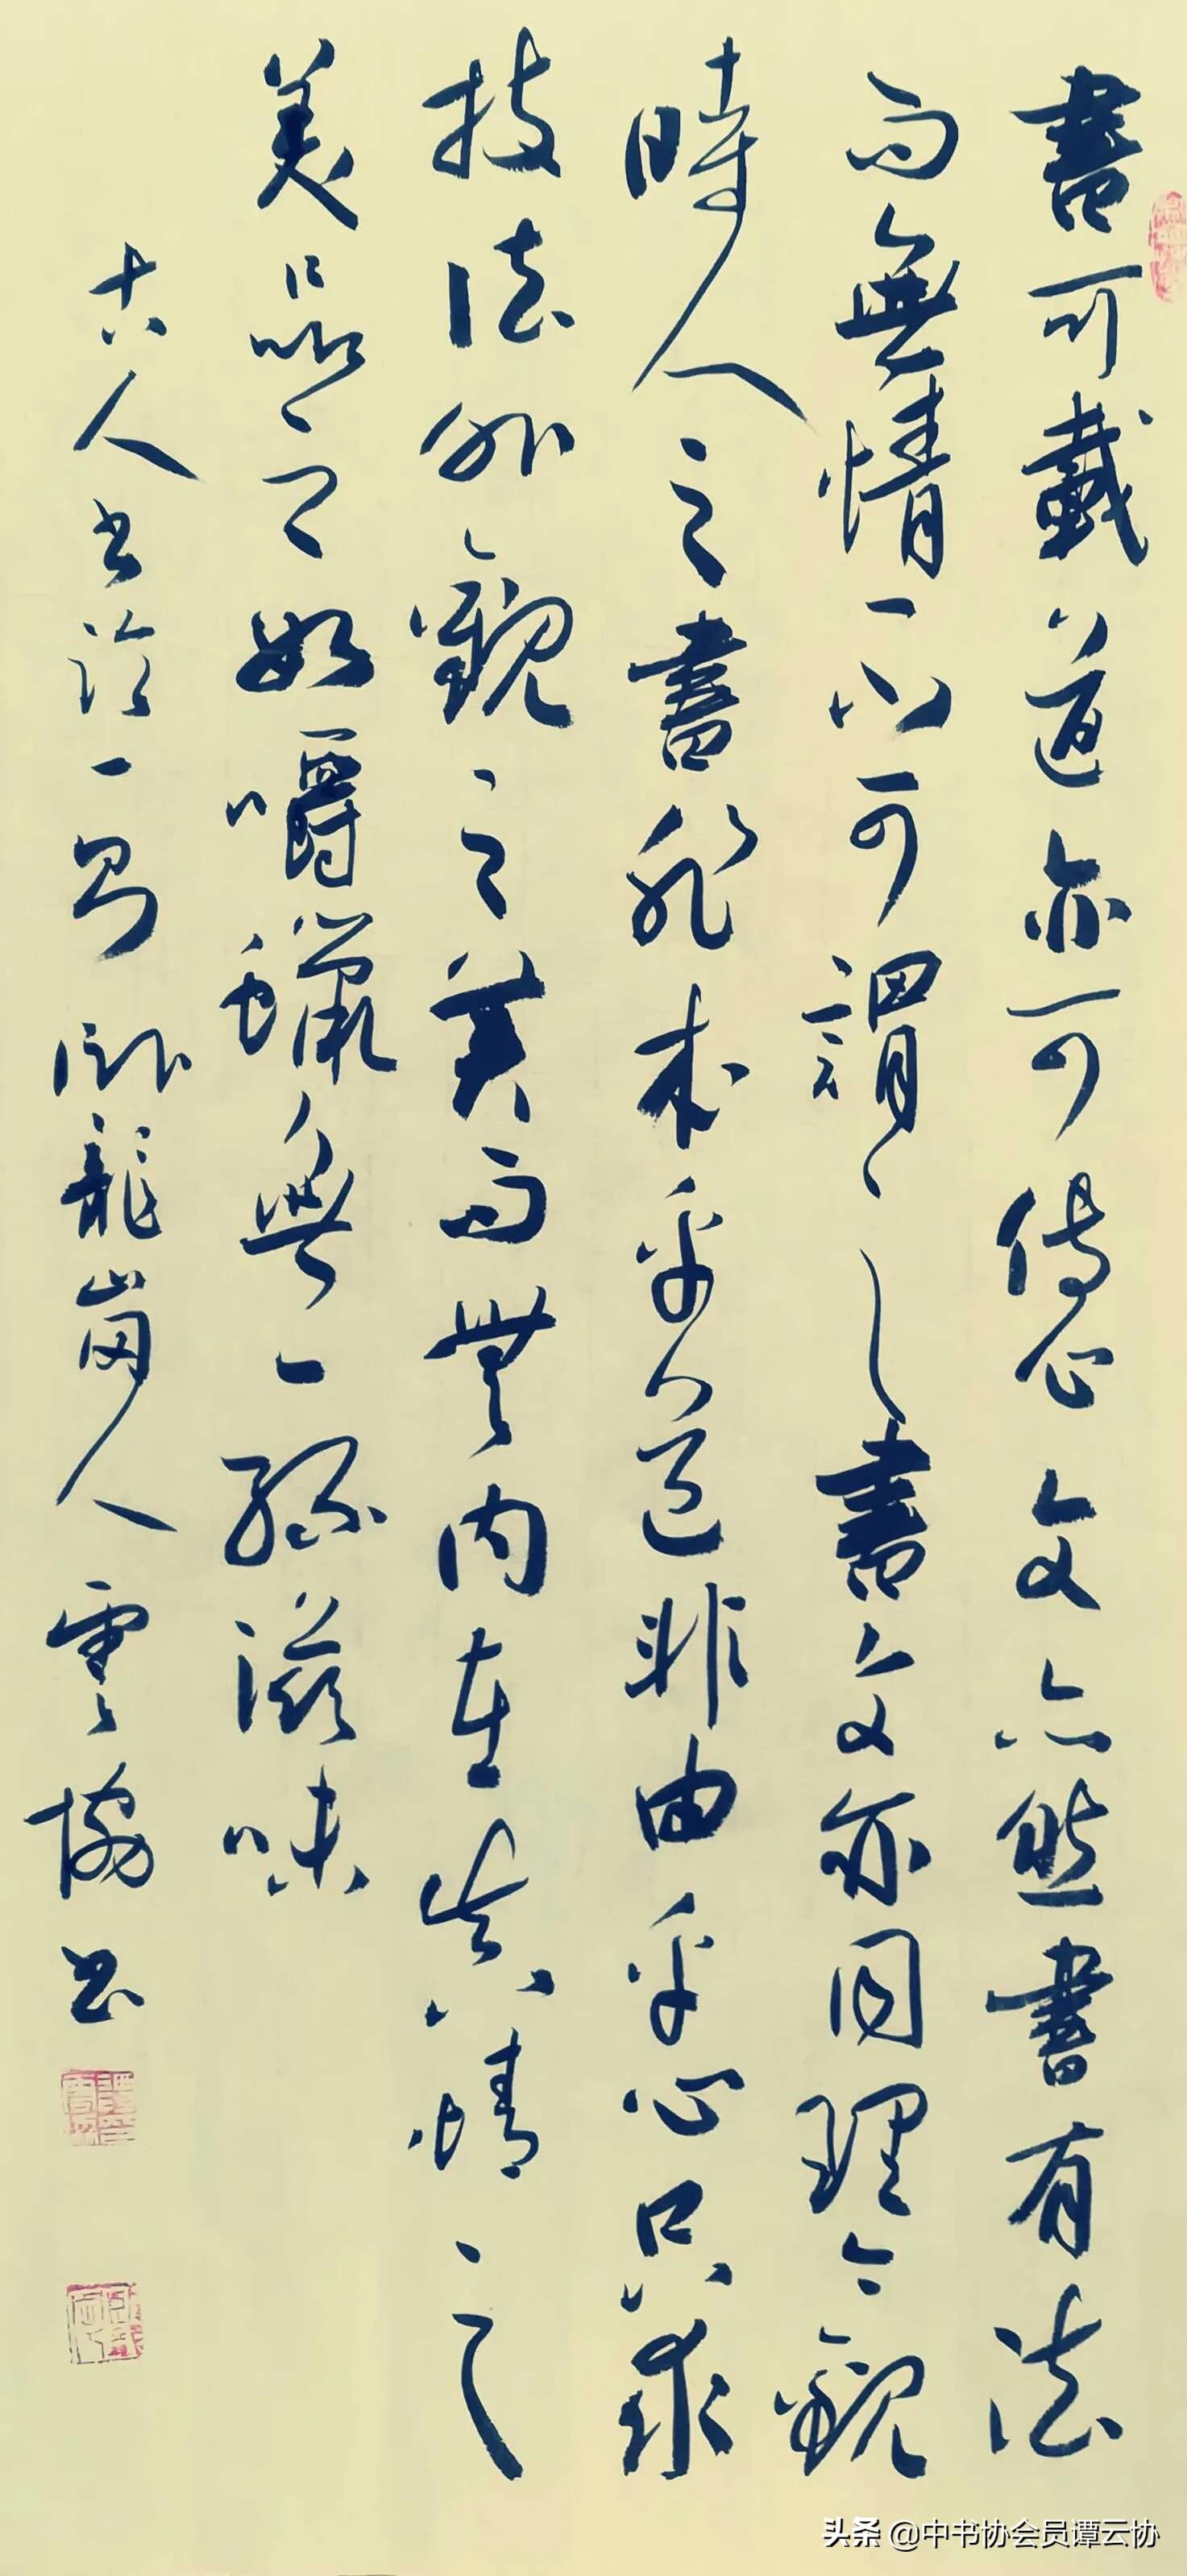 書可載道亦可傳心文亦然書有法
而無情不可謂之書文亦同理今觀
時人之書非本乎道非由乎心只求
技法外觀之美而無內在真情之
美品之如嚼蠟無一絲滋味
古人书論一則 臥龍崗人雲協书
头条 @中书协会员谭云协